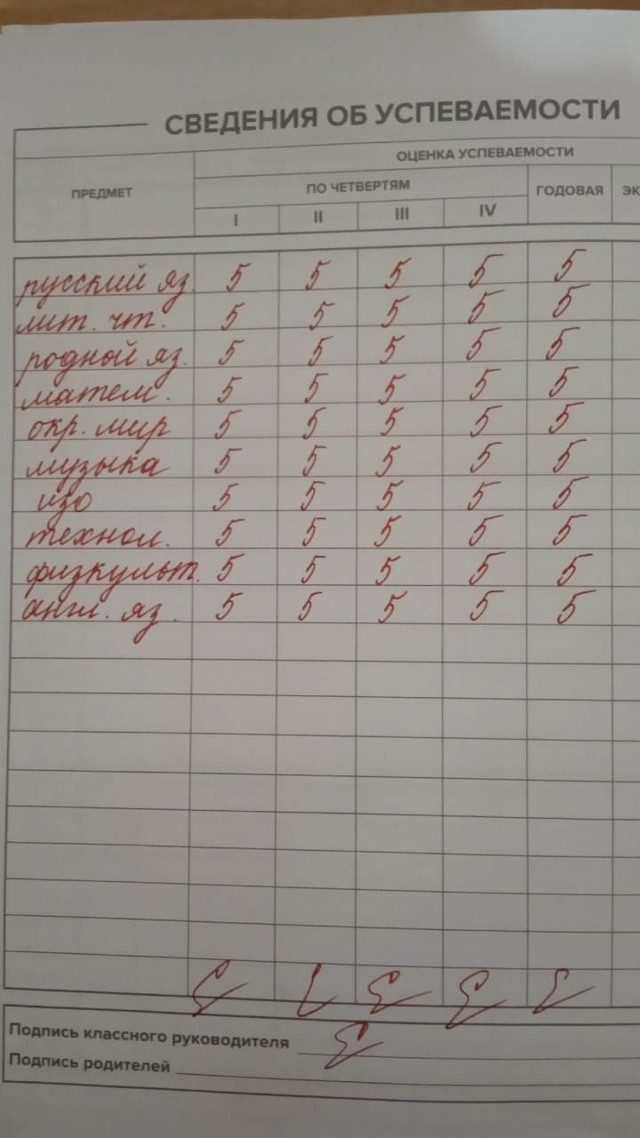 СВЕДЕНИЯ ОБ УСПЕВАЕМОСТИ
ПРЕДМЕТ
ОЦЕНКА УСПЕВАЕМОСТИ
ПО ЧЕТВЕРТЯМ
ГОДОВАЯ
ЭК
I II III IV
русский яз 5 5 5 5 5
лит. чт. 5 5 5 5 5
родной яз. 5 5 5 5 5
матем. 5 5 5 5 5
окр. мир 5 5 5 5 5
музыка 5 5 5 5 5
изо 5 5 5 5 5
технол. 5 5 5 5 5
физкульт. 5 5 5 5 5
англ. яз. 5 5 5 5 5
Подпись классного руководителя
Подпись родителей